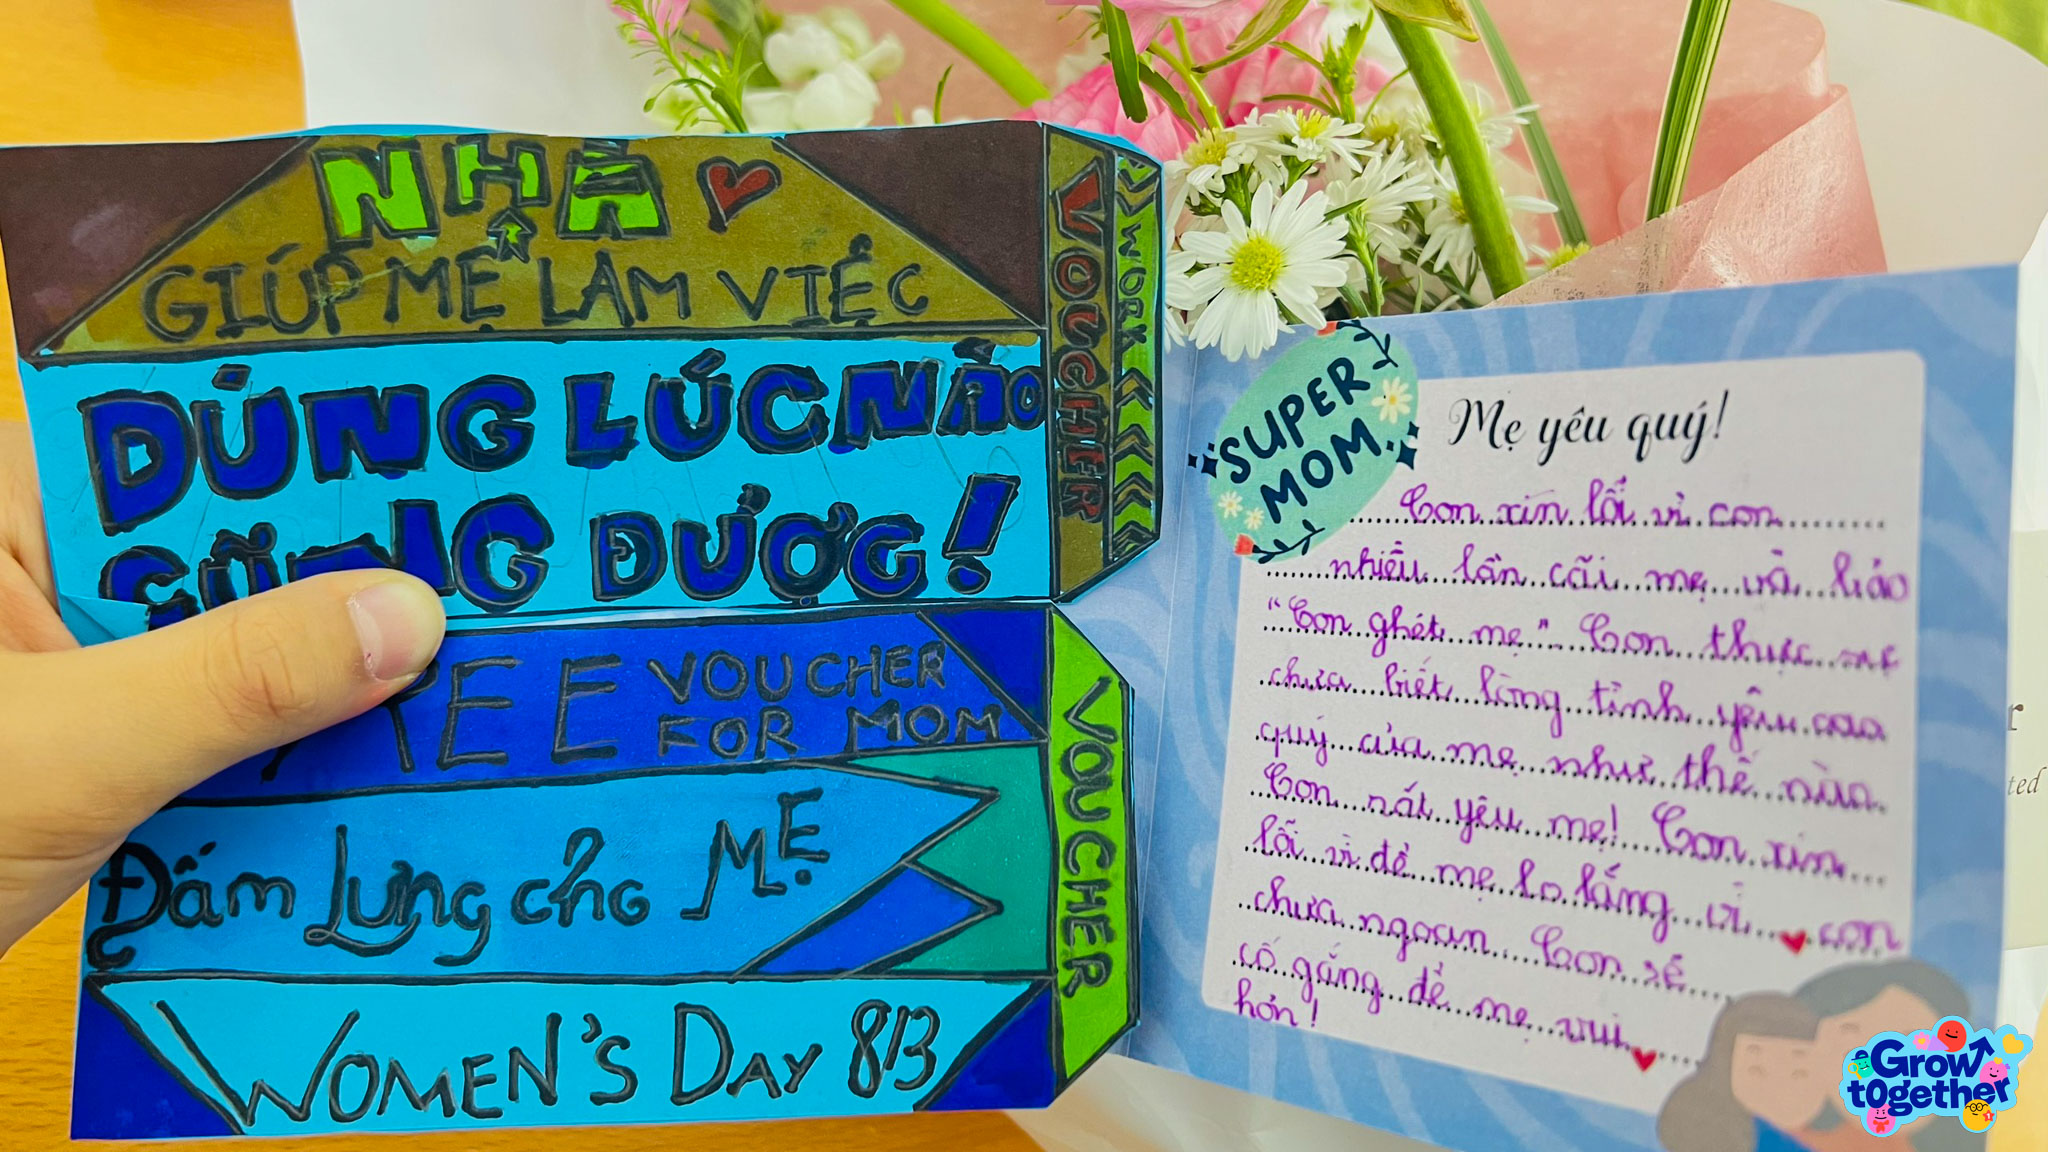 NHÀ
GIÚP MẸ LÀM VIỆC
DÙNG LÚC NÀO
CŨNG ĐƯỢC!
VOUCHER
WORK
FREE VOUCHER
FOR MOM
Đấm lưng cho MẸ
WOMEN'S DAY 8/3
VOUCHER
SUPER
MOM
Mẹ yêu quý!
Con xin lỗi vì con
nhiều lần cãi mẹ và bảo
"Con ghét mẹ". Con thực sự
chưa biết lòng tình yêu cao
quý của mẹ như thế nào.
Con rất yêu mẹ! Con xin
lỗi vì để mẹ lo lắng vì con
chưa ngoan. Con sẽ
cố gắng để mẹ vui
hơn!
ted
Grow
together